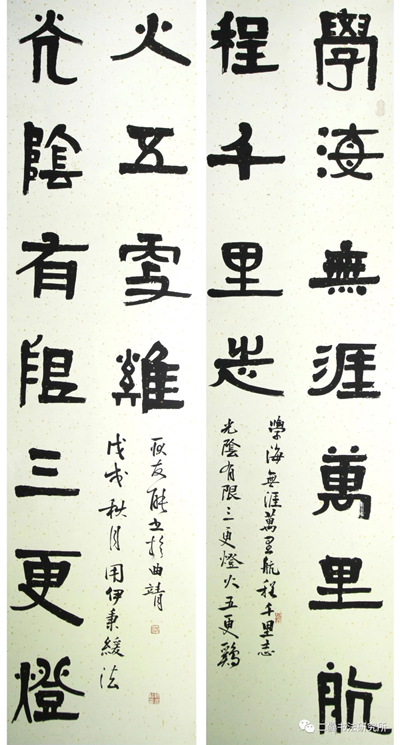 學海無涯萬里航
程千里志
學海無涯萬里航程千里志
光陰有限三更燈火五更鷄
光陰有限三更燈
火五更雞
戊戌秋月用伊秉綬法
耿友能书於曲靖
二爨书法研究所